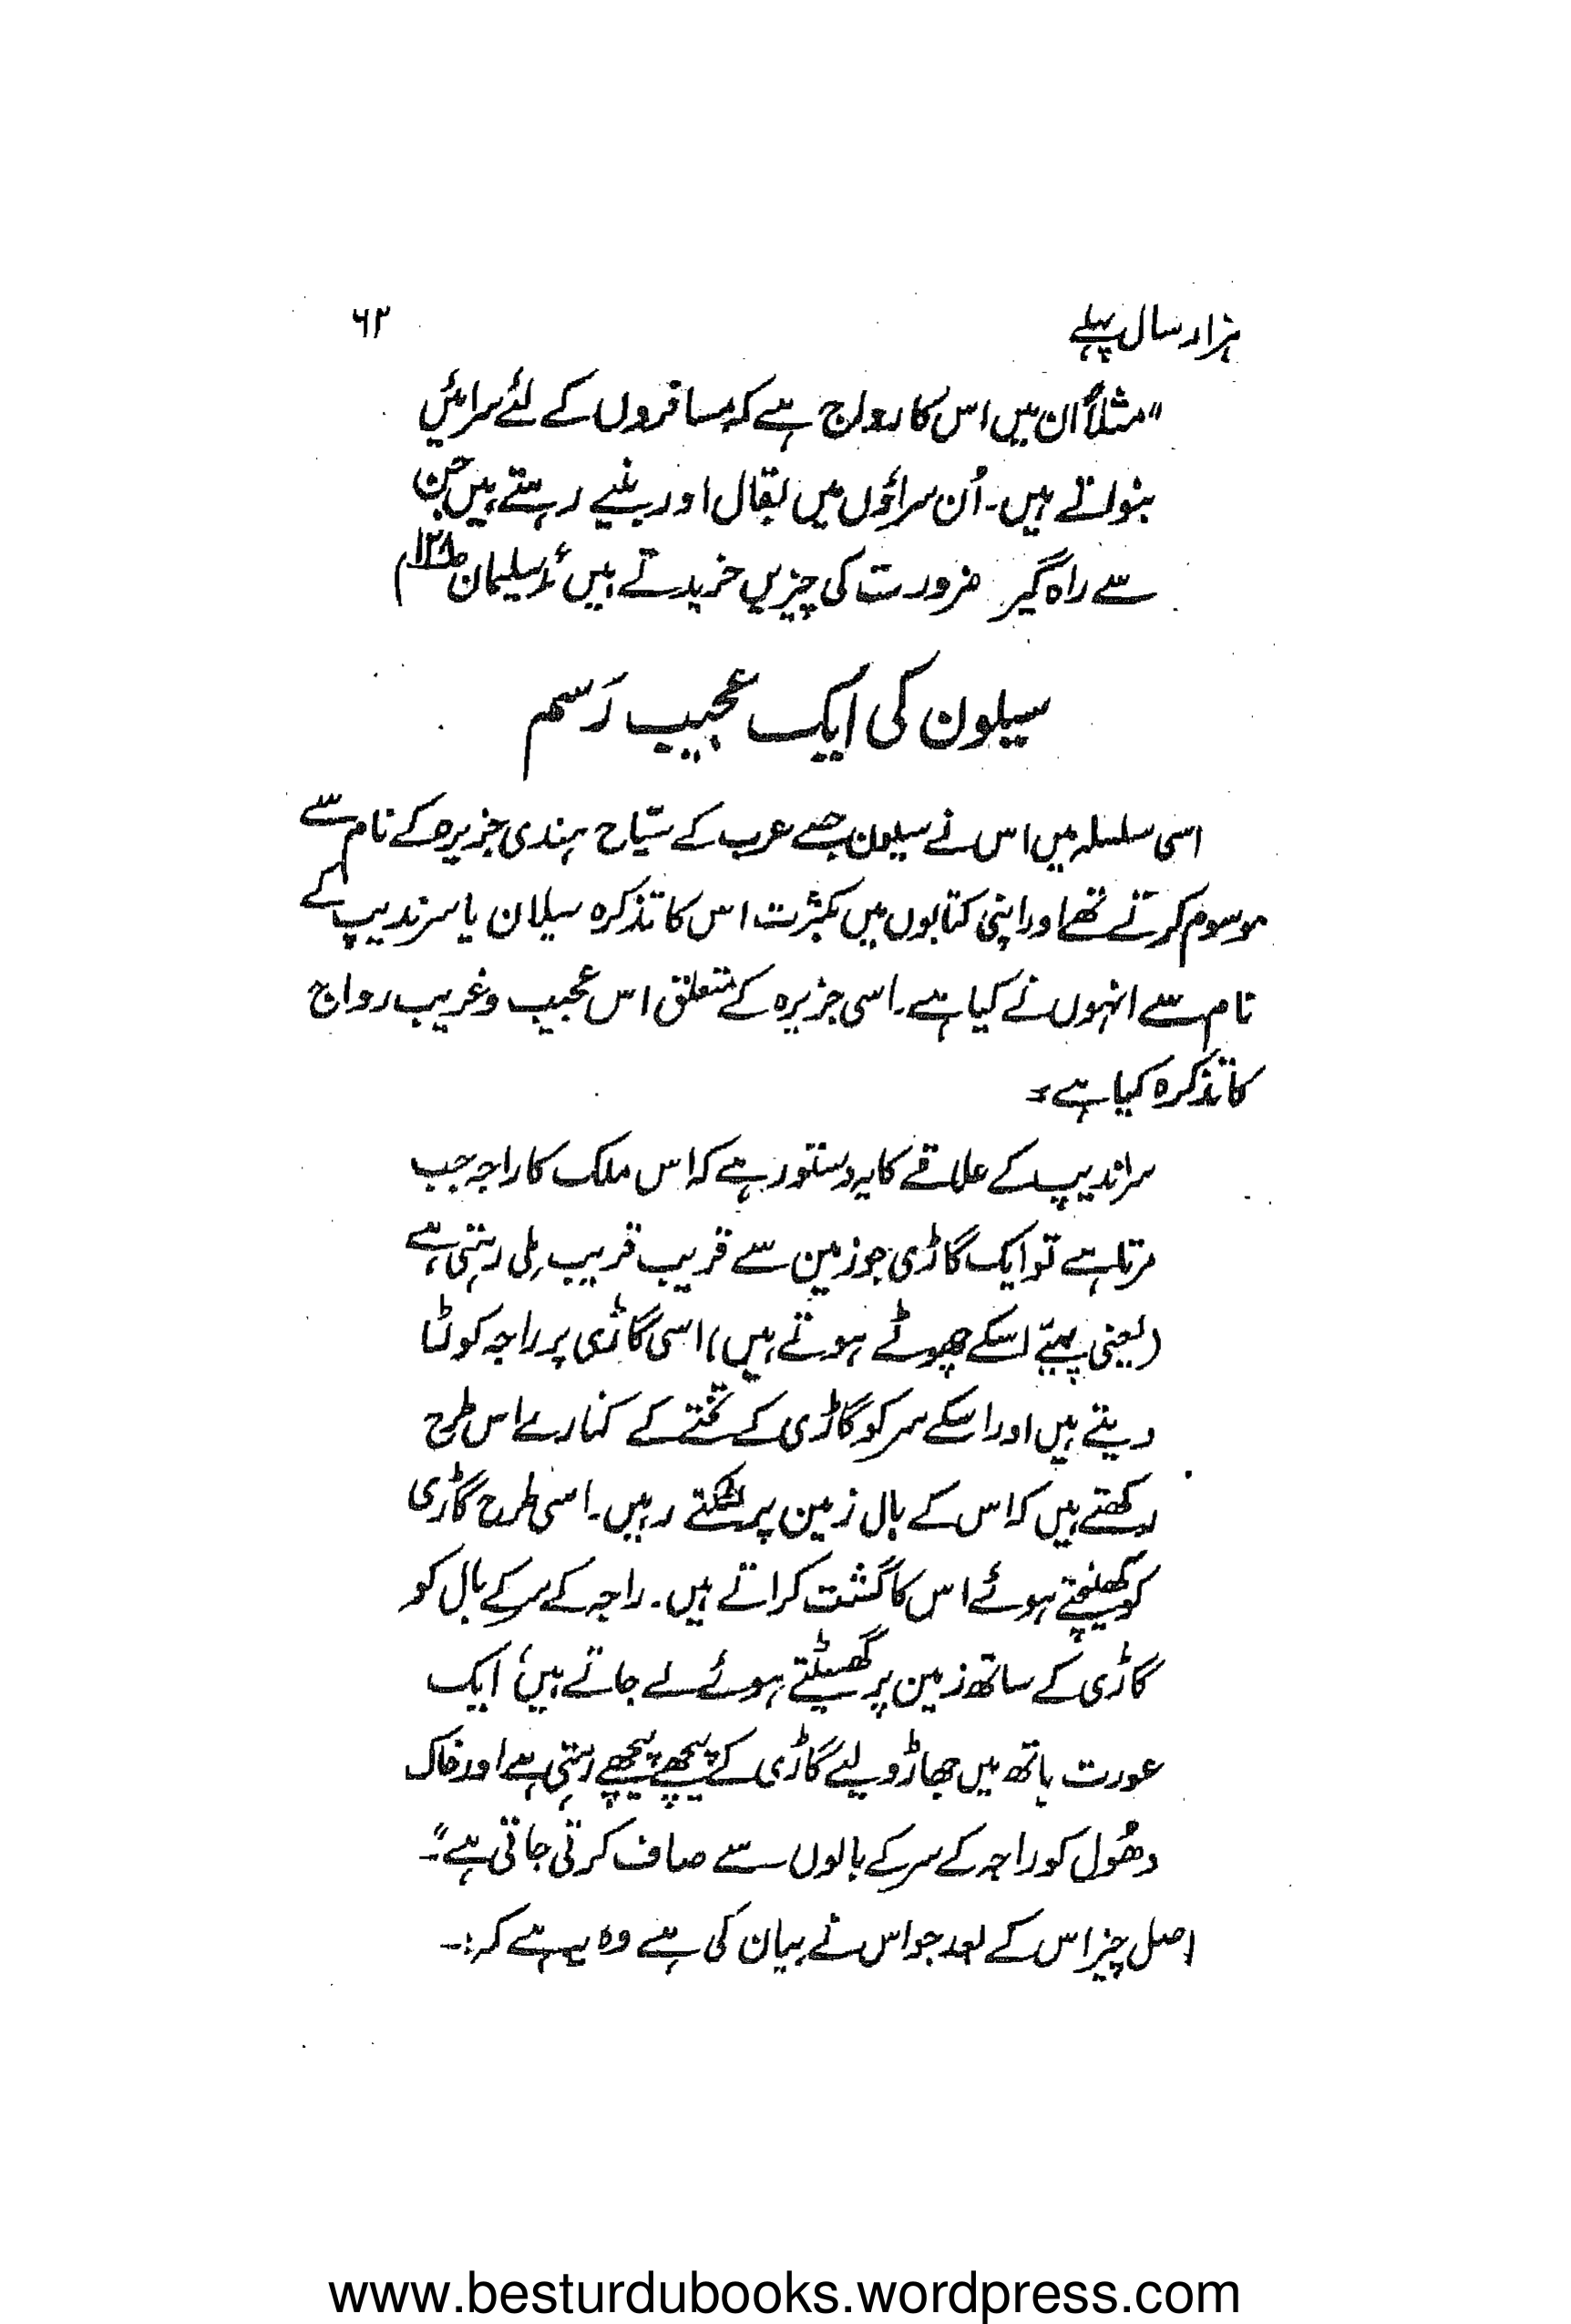 ہزار سال پہلے ۶۲
"مثلاً ان میں اس کا رواج ہے کہ مسافروں کے لئے سرائیں
بنواتے ہیں۔ اُن سراؤں میں بقال اور بنیے رہتے ہیں جن
سے راہ گیر ضرورت کی چیزیں خریدتے ہیں" (سلیمان ص۱۲۸)
سیلون کی ایک عجیب رَسم
اسی سلسلہ میں اس نے سیلون جسے عرب کے سیّاح ہندی جزیرہ کے نام سے
موسوم کرتے تھے اور اپنی کتابوں میں بکثرت اس کا تذکرہ سیلان یا سرندیپ کے
نام سے انہوں نے کیا ہے۔ اسی جزیرہ کے متعلق اس عجیب وغریب رواج
کا تذکرہ کیا ہے:
سراندیپ کے علاقے کا یہ دستور ہے کہ اس ملک کا راجہ جب
مرتا ہے تو ایک گاڑی جو زمین سے قریب قریب مِلی رہتی ہے
(یعنی پہیّے اسکے چھوٹے ہوتے ہیں) اسی گاڑی پر راجہ کو لٹا
دیتے ہیں اور اسکے سر کو گاڑی کے تختے کے کنارے اس طرح
رکھتے ہیں کہ اس کے بال زمین پر لٹکتے رہیں۔ اسی طرح گاڑی
کو کھینچتے ہوئے اس کا گشت کراتے ہیں۔ راجہ کے سر کے بال کو
گاڑی کے ساتھ زمین پر گھسیٹتے ہوئے لے جاتے ہیں، ایک
عورت ہاتھ میں جھاڑو لیے گاڑی کے پیچھے پیچھے رہتی ہے اور خاک
دھُول کو راجہ کے سر کے بالوں سے صاف کرتی جاتی ہے"۔
اصل چیز اس کے بعد جو اس نے بیان کی ہے وہ یہ ہے کہ:۔
www.besturdubooks.wordpress.com